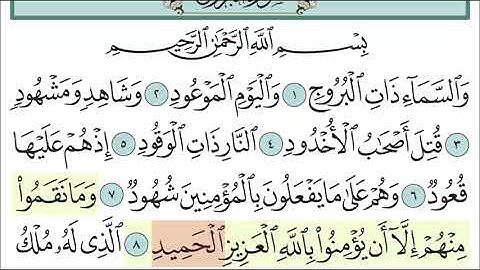 بِسْمِ اللَّهِ الرَّحْمَٰنِ الرَّحِيمِ
وَالسَّمَاءِ ذَاتِ الْبُرُوجِ ١ وَالْيَوْمِ الْمَوْعُودِ ٢ وَشَاهِدٍ وَمَشْهُودٍ
٣ قُتِلَ أَصْحَابُ الْأُخْدُودِ ٤ النَّارِ ذَاتِ الْوَقُودِ ٥ إِذْ هُمْ عَلَيْهَا
قُعُودٌ ٦ وَهُمْ عَلَىٰ مَا يَفْعَلُونَ بِالْمُؤْمِنِينَ شُهُودٌ ٧ وَمَا نَقَمُوا
مِنْهُمْ إِلَّا أَنْ يُؤْمِنُوا بِاللَّهِ الْعَزِيزِ الْحَمِيدِ ٨ الَّذِي لَهُ مُلْكُ